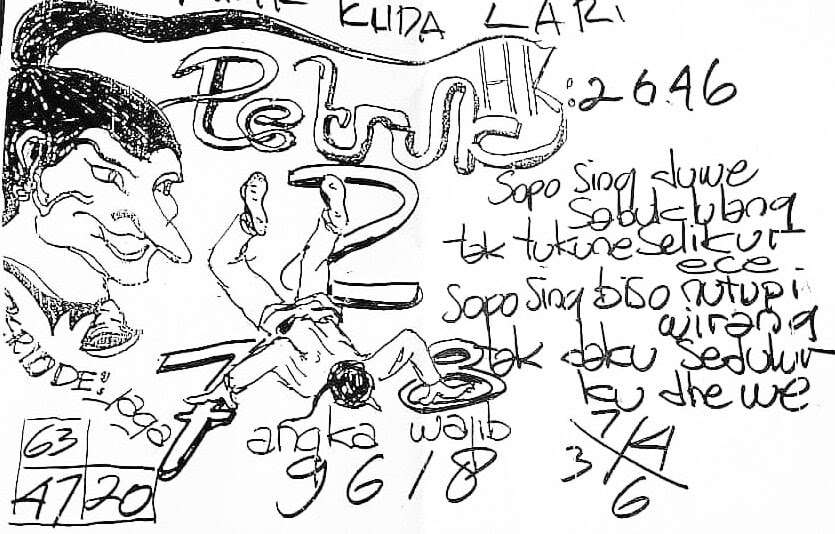 KUDA LARI
Petruk
:2646
Sopo Sing duwe
Sabuk lulang
tak tukune Selikur
ece
Sopo Sing biso nutupi
wirang
tak daku Sedulur
ku dhewe
2
7
3
PERIODE:
angka wajib
9618
63
47 20
7
3 4
6